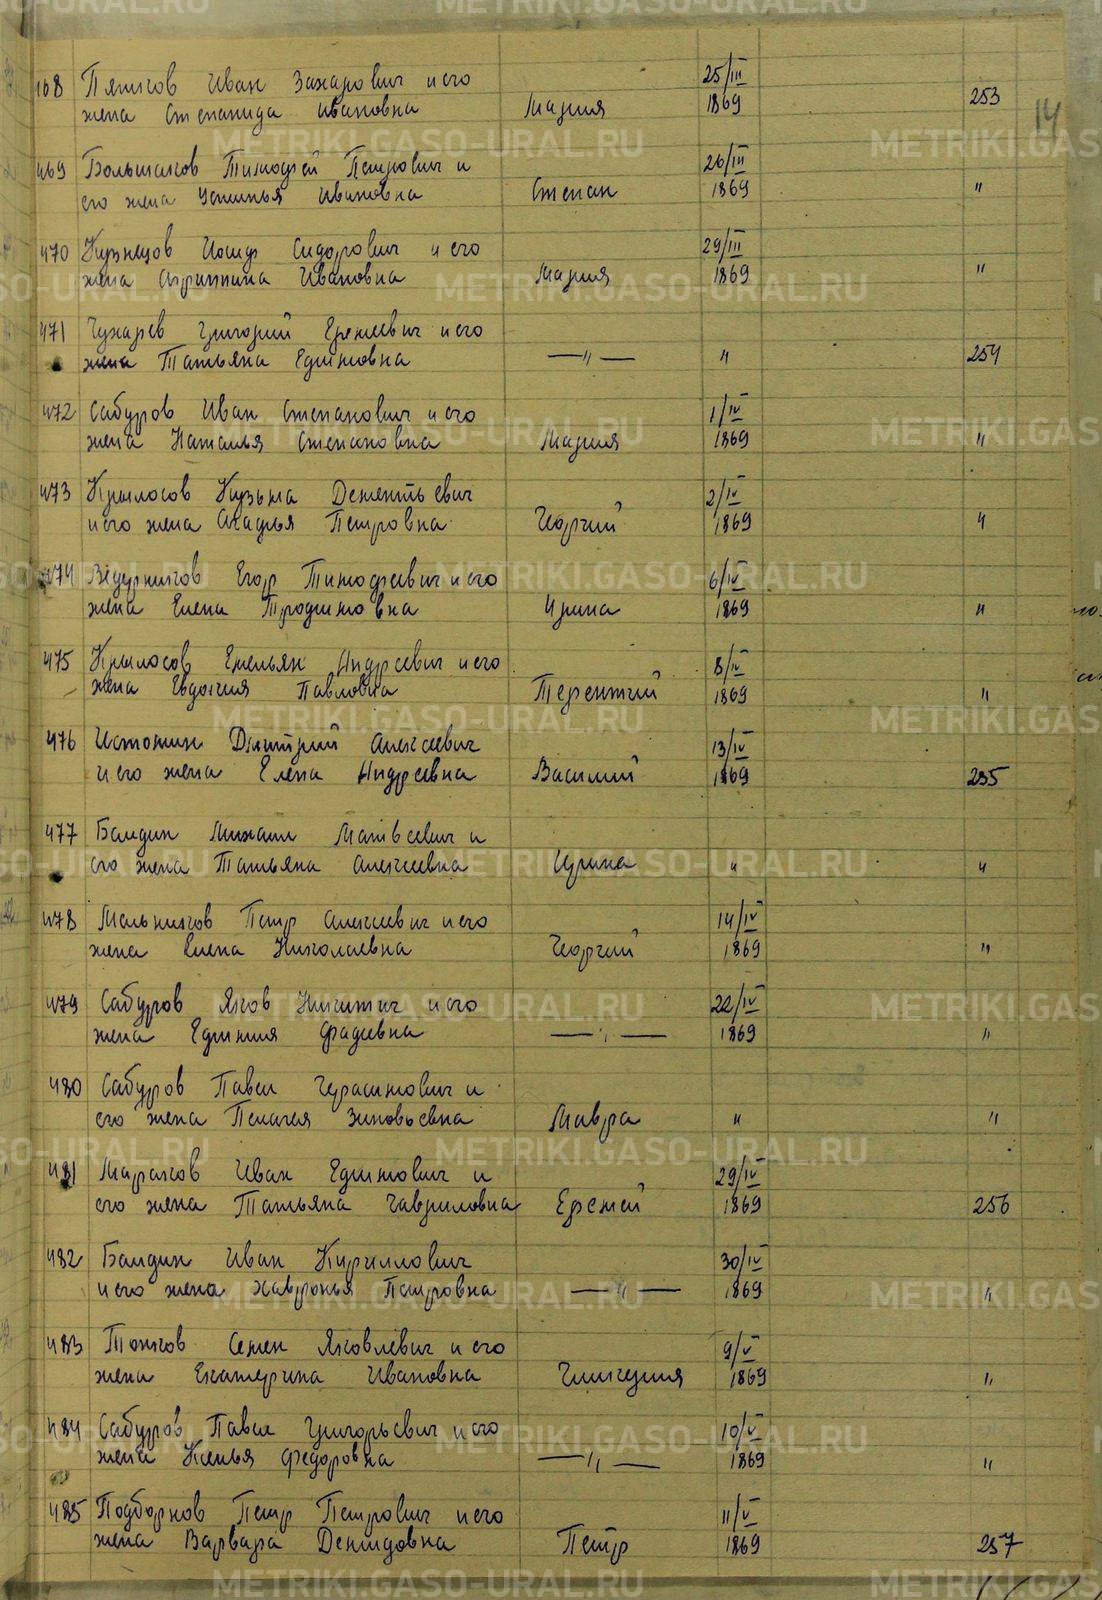 METRIKI.GASO-URAL.RU
14
468 Пятигов Иван Захарович и его 25/III
жена Степанида Ивановна Мария 1869 253
469 Большаков Тимофей Петрович и 26/III
его жена Устинья Ивановна Степан 1869 "
470 Кузнецов Иосиф Сидорович и его 29/III
жена Агриппина Ивановна Мария 1869 "
471 Чухарев Григорий Еремеевич и его
жена Татьяна Ефимовна —"— " 254
472 Сабуров Иван Степанович и его 1/IV
жена Наталья Степановна Мария 1869 "
473 Крылосов Кузьма Дементьевич 2/IV
и его жена Агафья Петровна Георгий 1869 "
474 Ведерников Егор Тимофеевич и его 6/IV
жена Елена Трофимовна Ирина 1869 "
475 Крылосов Емельян Андреевич и его 8/IV
жена Евдокия Павловна Терентий 1869 "
476 Истомин Дмитрий Алексеевич 13/IV
и его жена Елена Андреевна Василий 1869 255
477 Балдин Михаил Матвеевич и
его жена Татьяна Алексеевна Ирина " "
478 Мельников Петр Алексеевич и его 14/IV
жена Елена Николаевна Георгий 1869 "
479 Сабуров Яков Никитич и его 22/IV
жена Ефимия Фадеевна —"— 1869 "
480 Сабуров Павел Герасимович и
его жена Пелагея Зиновьевна Мавра " "
481 Иван Ефимович и 29/IV
его жена Татьяна Гавриловна Еремей 1869 256
482 Балдин Иван Кириллович 30/IV
и его жена Хавронья Петровна —"— 1869 "
483 Семен Яковлевич и его 9/V
жена Екатерина Ивановна Гликерия 1869 "
484 Сабуров Павел Григорьевич и его 10/V
жена Ксенья Федоровна —"— 1869 "
485 Подборнов Петр Петрович и его 11/V
жена Варвара Демидовна Петр 1869 257